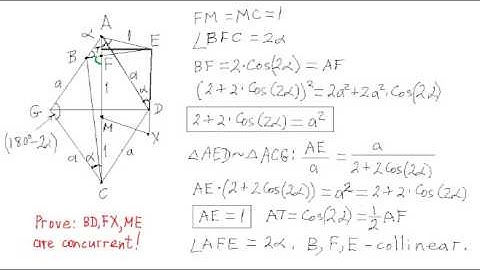 A
α
1
B
E
2α
F
a
a
α
1
G
D
M
(180°-2α)
X
a
α
1
a
C
Prove: BD,FX,ME
are concurrent!
FM = MC = 1
∠BFC = 2α
BF = 2·Cos(2α) = AF
(2+2·Cos(2α))² = 2a²+2a²·Cos(2α)
2+2·Cos(2α) = a²
△AED~△ACG: AE/a = a/(2+2Cos(2α))
AE·(2+2Cos(2α)) = a² = 2+2Cos(2α)
AE = 1 AT = Cos(2α) = 1/2 AF
∠AFE = 2α. B, F, E - collinear.